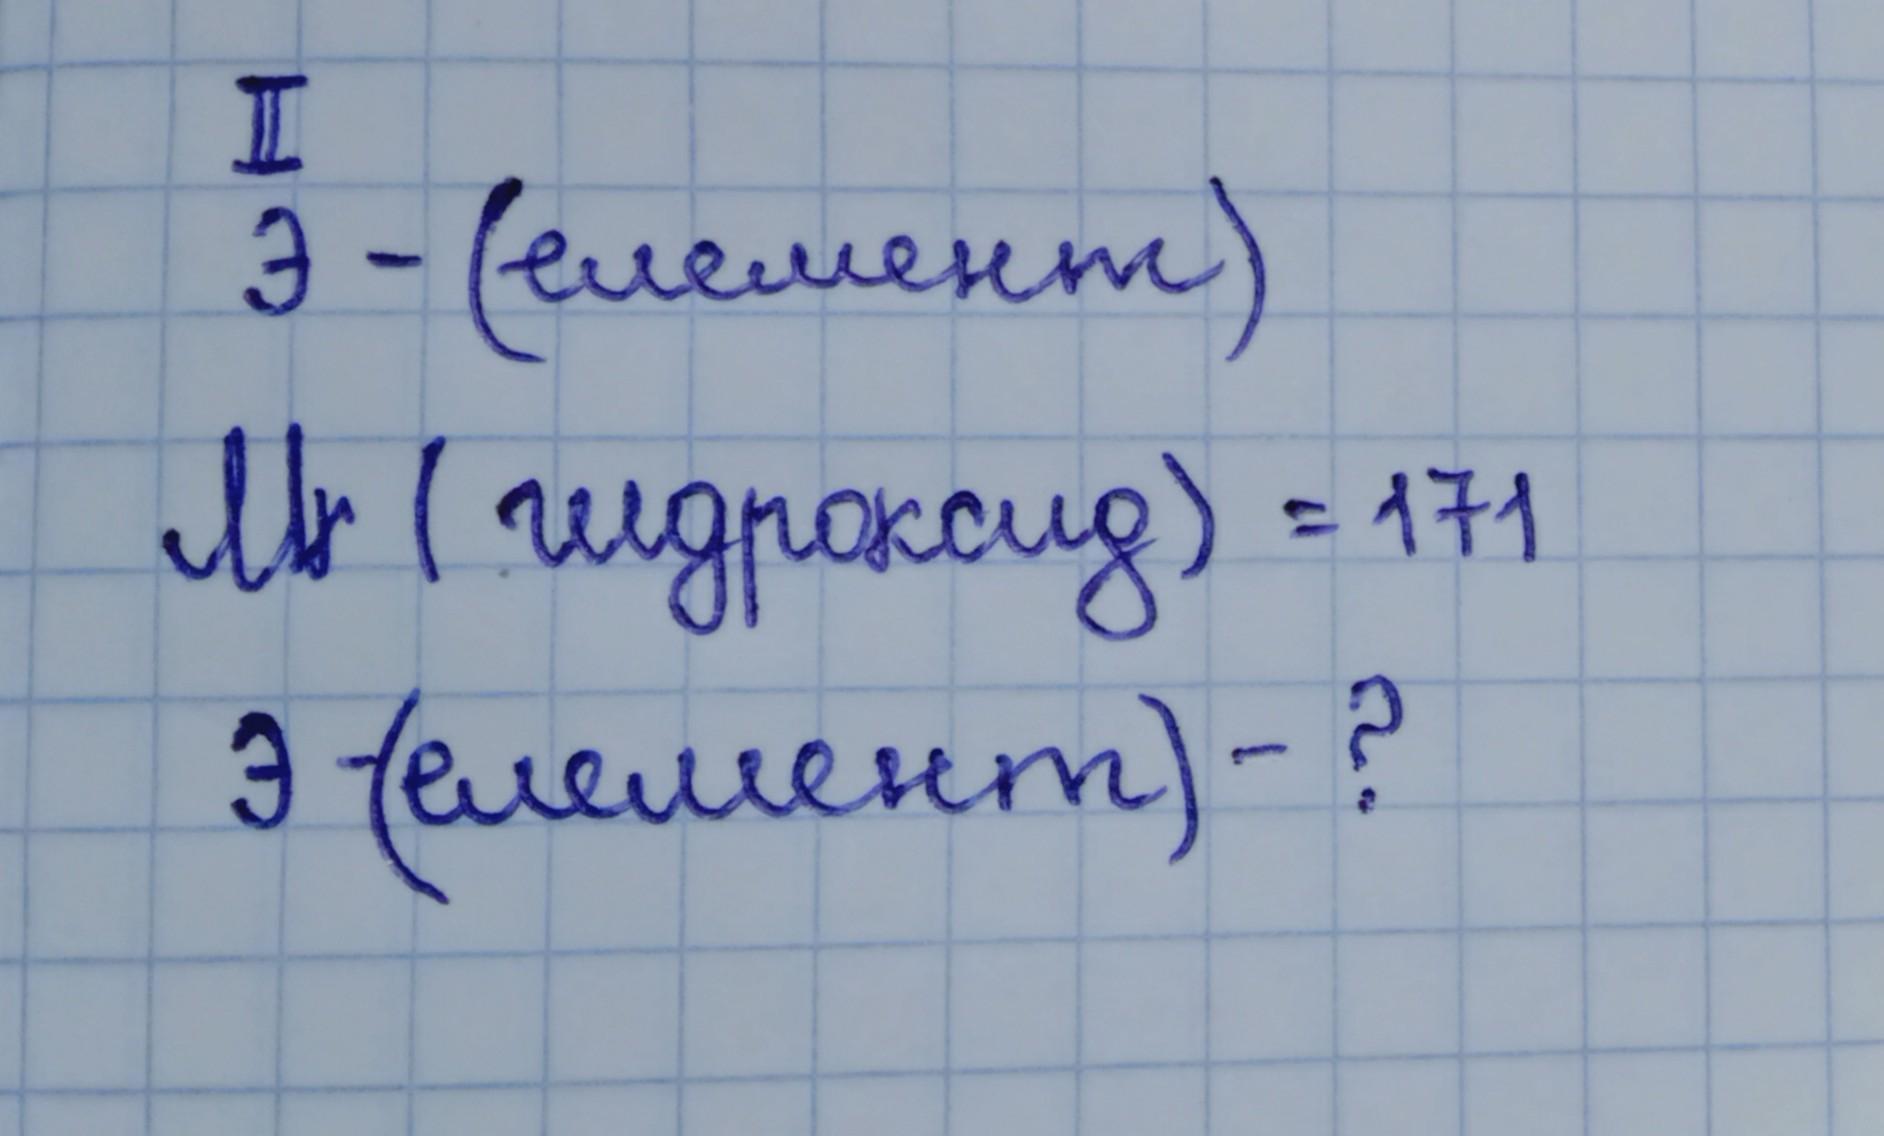 II
Э - (елемент)
Mr (гидроксид) = 171
Э - (елемент) - ?